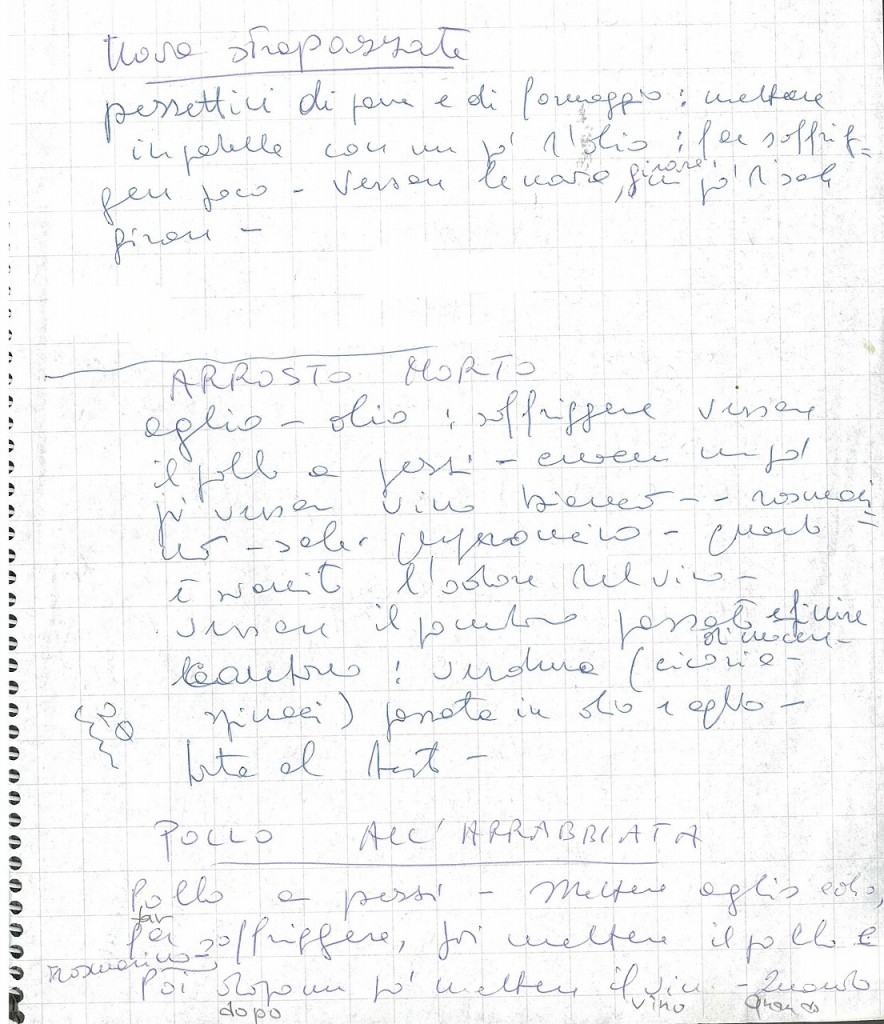 Uova strapazzate
pezzettini di pane e di formaggio : mettere
in padella con un po' d'olio : far soffrig=
gere poco - Versare le uova, girare, un po' di sale
girare -
ARROSTO MORTO
aglio - olio : soffriggere versare
il pollo a pezzi - cuocere un po'
più versare vino bianco - - rosmari=
no - sale - peperoncino - quando
è svanito l'odore del vino -
versare il pomodoro passato e finire
di cuocere -
Contorno : verdura (cicoria -
spinaci) passata in olio e aglio -
POLLO ALL'ARRABBIATA
Pollo a pezzi - Mettere aglio e olio,
far
far soffriggere, poi mettere il pollo e
rosmarino -
Poi dopo un po' mettere il vino - Quando
dopo vino Quando